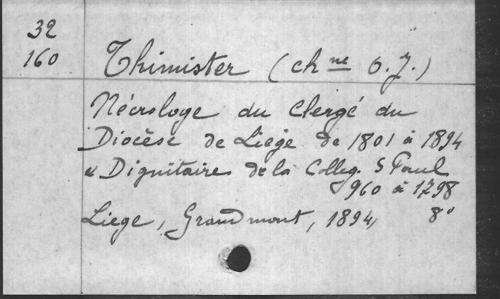 32
160
Thimister (chne O.J.)
Nécrologe du Clergé du
Diocèse de Liège de 1801 à 1894
& Dignitaires de la Colleg. S Paul
960 à 1798
Liege, Grandmont, 1894, 8°